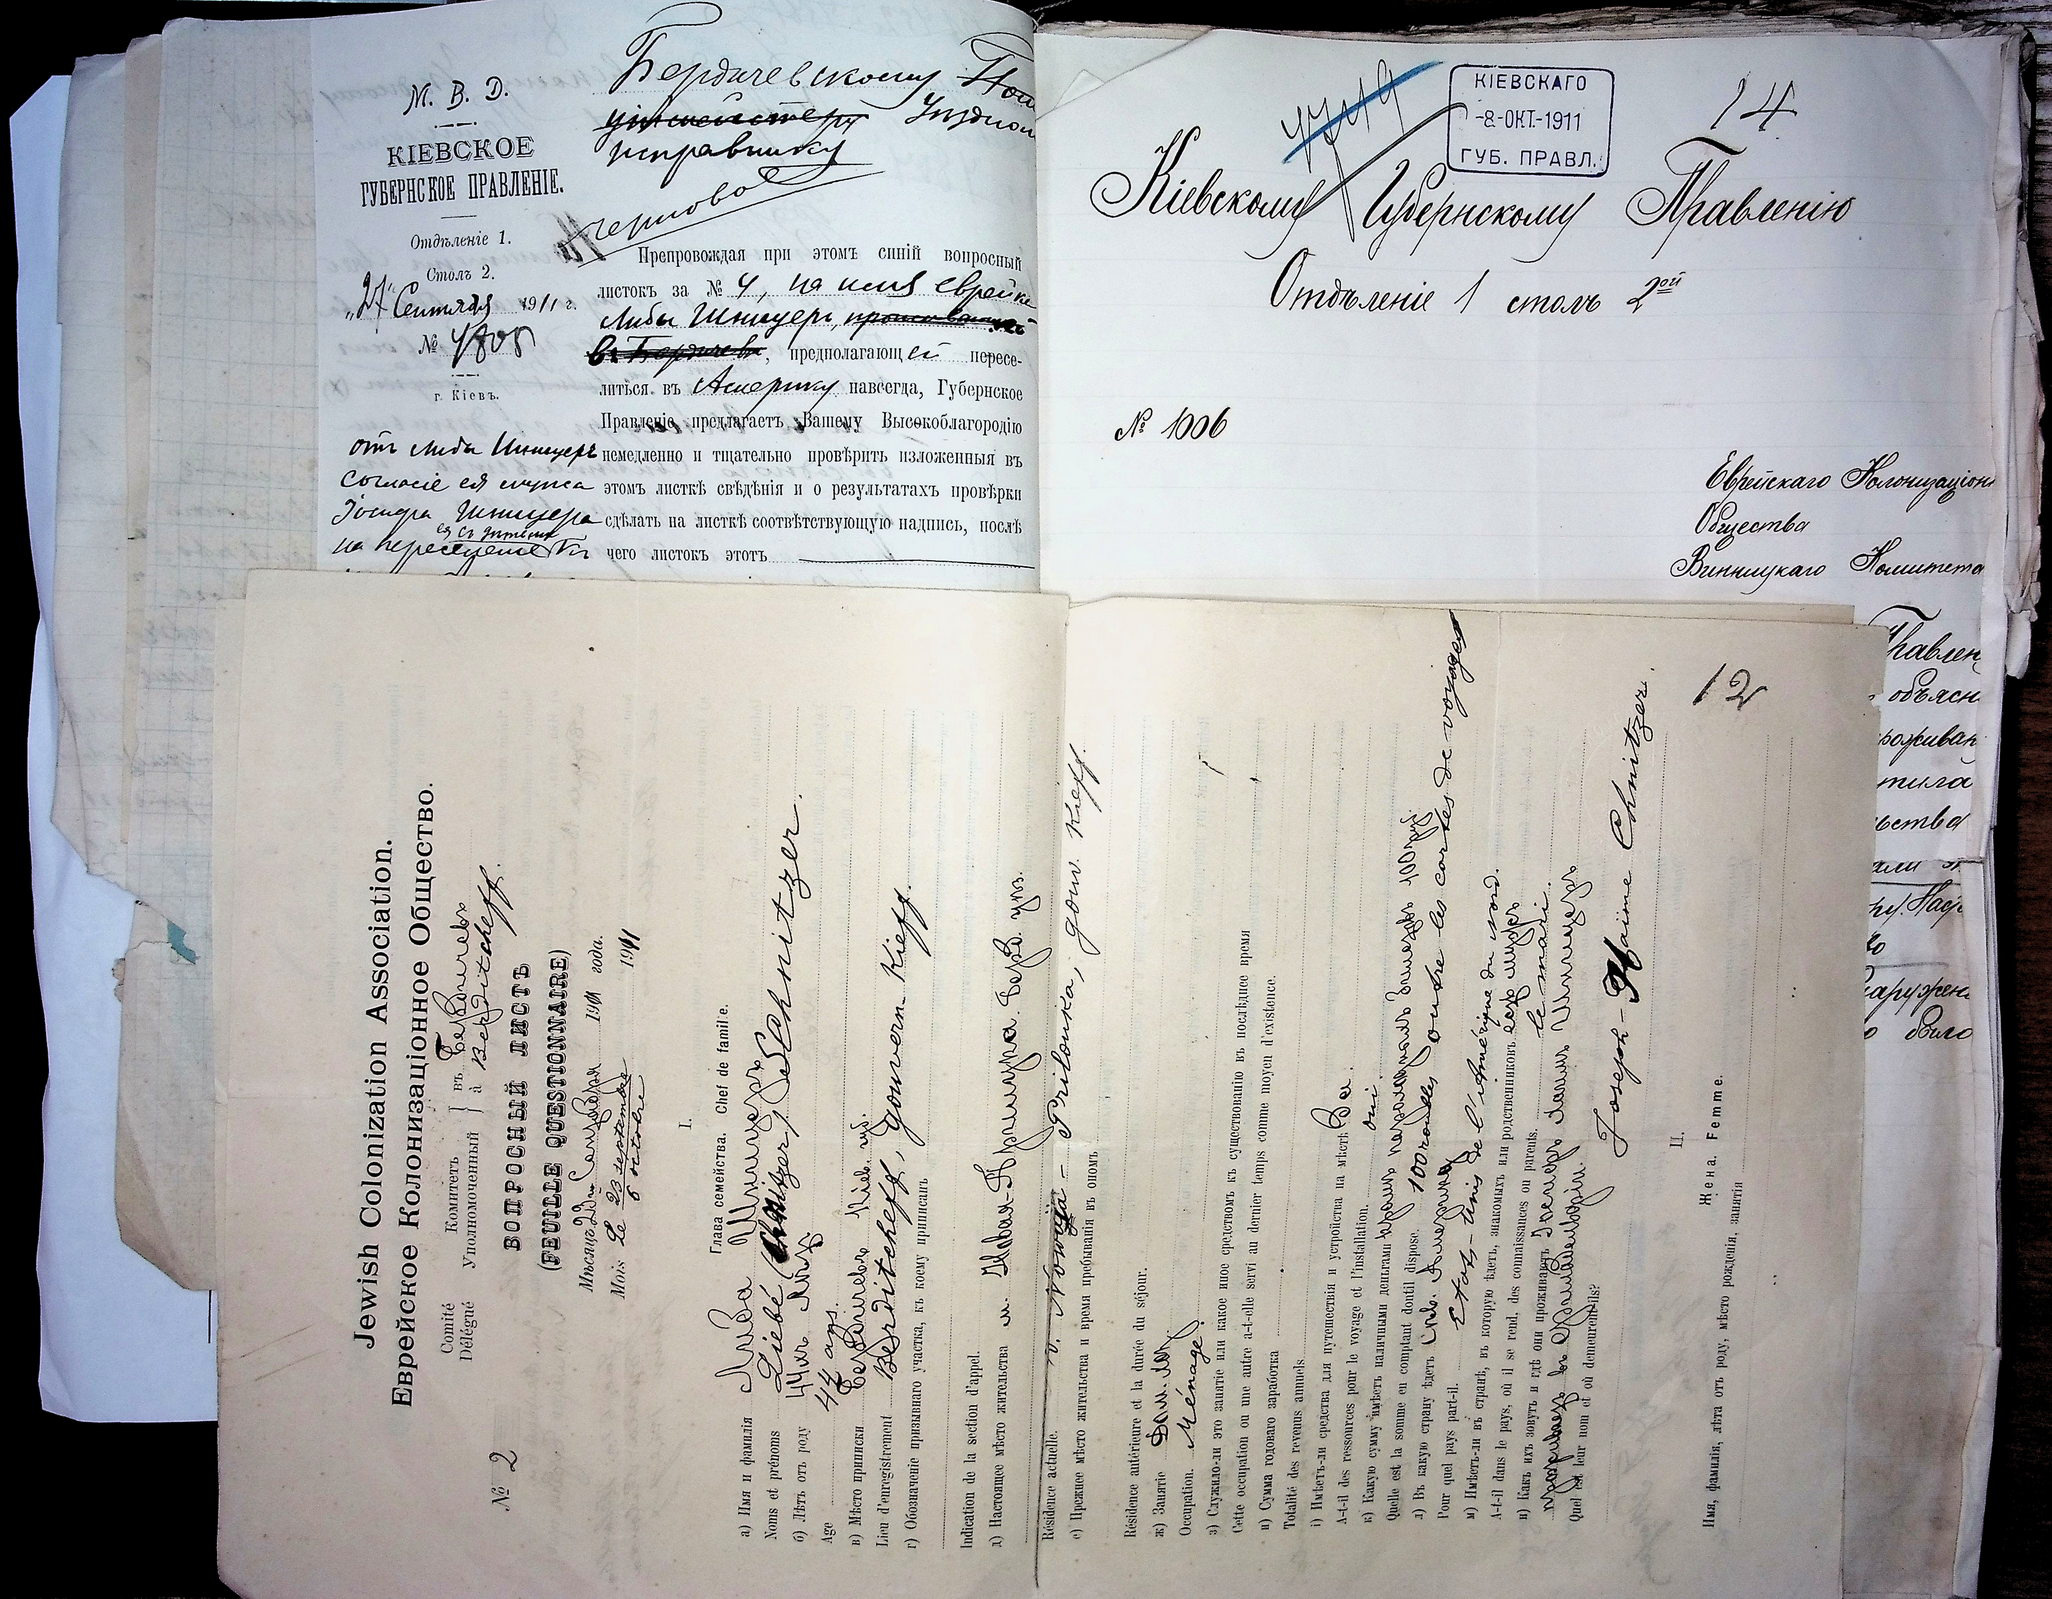 М. В. Д.
КІЕВСКОЕ
ГУБЕРНСКОЕ ПРАВЛЕНІЕ.
Отдѣленіе 1.
Столъ 2.
„27" Сентября 1911 г.
№
г. Кіевъ.
отъ Либы Шницеръ
согласіе ея мужа
Іосифа Шницера
ея съ дѣтьми
на переселеніе
Бердичевскому
Уѣздном
исправнику
Черновое
Препровождая при этомъ синій вопросный
листокъ за № 4, на имя еврейки
Либы Шницеръ, проживающей
въ Бердичевѣ, предполагающей пересе-
литься въ Америку навсегда, Губернское
Правленіе предлагаетъ Вашему Высокоблагородію
немедленно и тщательно провѣрить изложенныя въ
этомъ листкѣ свѣдѣнія и о результатахъ провѣрки
сдѣлать на листкѣ соотвѣтствующую надпись, послѣ
чего листокъ этотъ
КІЕВСКАГО
-8-ОКТ.-1911
ГУБ. ПРАВЛ.
14
Кіевскому Губернскому Правленію
Отдѣленіе 1 столъ 2ой
№ 1006
Еврейскаго Колонизаціон
Общества
Винницкаго Комитета
Правлен
объясн
роживан
тила
ьства
аружен
было
12
Jewish Colonization Association.
Еврейское Колонизаціонное Общество.
Comité Комитетъ въ Бердичевѣ
Délégué Уполномоченный à Berditcheff.
№ 2
ВОПРОСНЫЙ ЛИСТЪ
(FEUILLE QUESTIONNAIRE)
Мѣсяцъ 23го Сентября 1911 года.
Mois Le 23 septembre 1911
6 octobre
I.
Глава семейства. Chef de famille.
а) Имя и фамилія Либа Шницеръ
Noms et prénoms Liébé Schnitzer.
б) Лѣтъ отъ роду 44 лѣтъ
Age 44 ans.
в) Мѣсто приписки Бердичевъ Кіев. губ.
Lieu d'enregistrement Berditcheff, gouvern. Kieff.
г) Обозначеніе призывного участка, къ коему приписанъ
Indication de la section d'appel.
д) Настоящее мѣсто жительства м. Новая-Прилука. Берд. уѣз.
Résidence actuelle. Priloukа, gouv. Kieff.
е) Прежнее мѣсто жительства и время пребыванія въ ономъ
Résidence antérieure et la durée du séjour.
ж) Занятіе Дом. хоз.
Occupation. Ménage.
з) Служило-ли это занятіе или какое иное средствомъ къ существованію въ послѣднее время
Cette occupation ou une autre a-t-elle servi au dernier temps comme moyen d'existence.
и) Сумма годоваго заработка
Totalité des revenus annuels
і) Имѣетъ-ли средства для путешествія и устройства на мѣстѣ Да.
A-t-il des ressources pour le voyage et l'installation. oui.
к) Какую сумму имѣетъ наличными деньгами кромѣ билетовъ 100 руб.
Quelle est la somme en comptant dont il dispose. 100 roubles outre les cartes de voyages
л) Въ какую страну ѣдетъ Сѣв. Америка
Pour quel pays part-il. Etats-Unis de l'Amérique du nord.
м) Имѣетъ-ли въ странѣ, въ которую ѣдетъ, знакомыхъ или родственниковъ есть мужъ
A-t-il dans le pays, où il se rend, des connaissances ou parents. le mari.
н) Какъ ихъ зовутъ и гдѣ они проживаютъ Шницеръ
проживаетъ въ Филадельфіи.
Quel est leur nom et où demeurent-ils? Joseph-Haïme Chnitzer.
II.
Жена. Femme.
Имя, фамилія, лѣта отъ роду, мѣсто рожденія, занятія